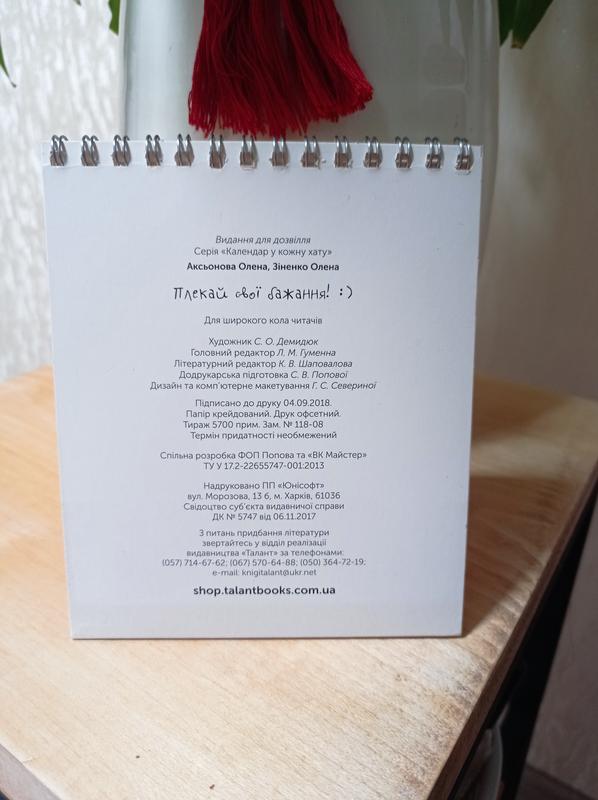 Видання для дозвілля
Серія «Календар у кожну хату»
Аксьонова Олена, Зіненко Олена
Плекай свої бажання! :)
Для широкого кола читачів
Художник С. О. Демидюк
Головний редактор Л. М. Гуменна
Літературний редактор К. В. Шаповалова
Додрукарська підготовка С. В. Попової
Дизайн та комп'ютерне макетування Г. С. Севериної
Підписано до друку 04.09.2018.
Папір крейдований. Друк офсетний.
Тираж 5700 прим. Зам. № 118-08
Термін придатності необмежений
Спільна розробка ФОП Попова та «ВК Майстер»
ТУ У 17.2-22655747-001:2013
Надруковано ПП «Юнісофт»
вул. Морозова, 13 б, м. Харків, 61036
Свідоцтво суб'єкта видавничої справи
ДК № 5747 від 06.11.2017
З питань придбання літератури
звертайтесь у відділ реалізації
видавництва «Талант» за телефонами:
(057) 714-67-62; (067) 570-64-88; (050) 364-72-19;
e-mail: knigitalant@ukr.net
shop.talantbooks.com.ua